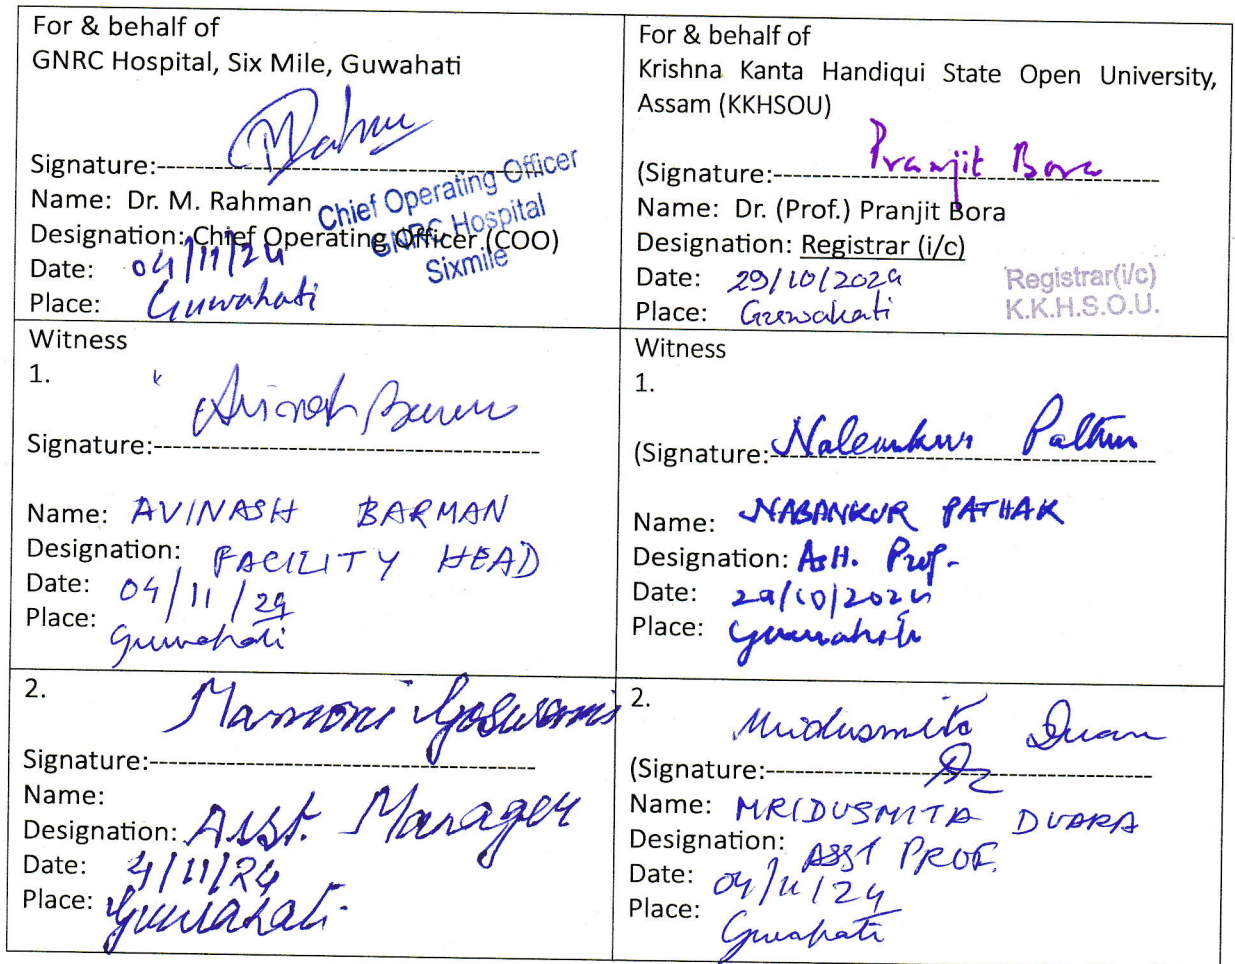 For & behalf of
GNRC Hospital, Six Mile, Guwahati
Signature:
Name: Dr. M. Rahman
Designation: Chief Operating Officer (COO)
Chief Operating Officer
GNRC Hospital
Sixmile
Date: 04/11/24
Place: Guwahati
For & behalf of
Krishna Kanta Handiqui State Open University,
Assam (KKHSOU)
(Signature: Pranjit Bora
Name: Dr. (Prof.) Pranjit Bora
Designation: Registrar (i/c)
Date: 29/10/2024
Place: Guwahati
Registrar(i/c)
K.K.H.S.O.U.
Witness
1.
Signature: Avinash Barman
Name: AVINASH BARMAN
Designation: FACILITY HEAD
Date: 04/11/24
Place: Guwahati
Witness
1.
(Signature: Nabankur Pathak
Name: NABANKUR PATHAK
Designation: Asst. Prof.
Date: 29/10/2024
Place: Guwahati
2.
Signature: Mamoni Goswami
Name:
Designation: Asst. Manager
Date: 4/11/24
Place: Guwahati
2.
(Signature: Mridusmita Duara
Name: MRIDUSMITA DUARA
Designation: ASST PROF.
Date: 04/11/24
Place: Guwahati